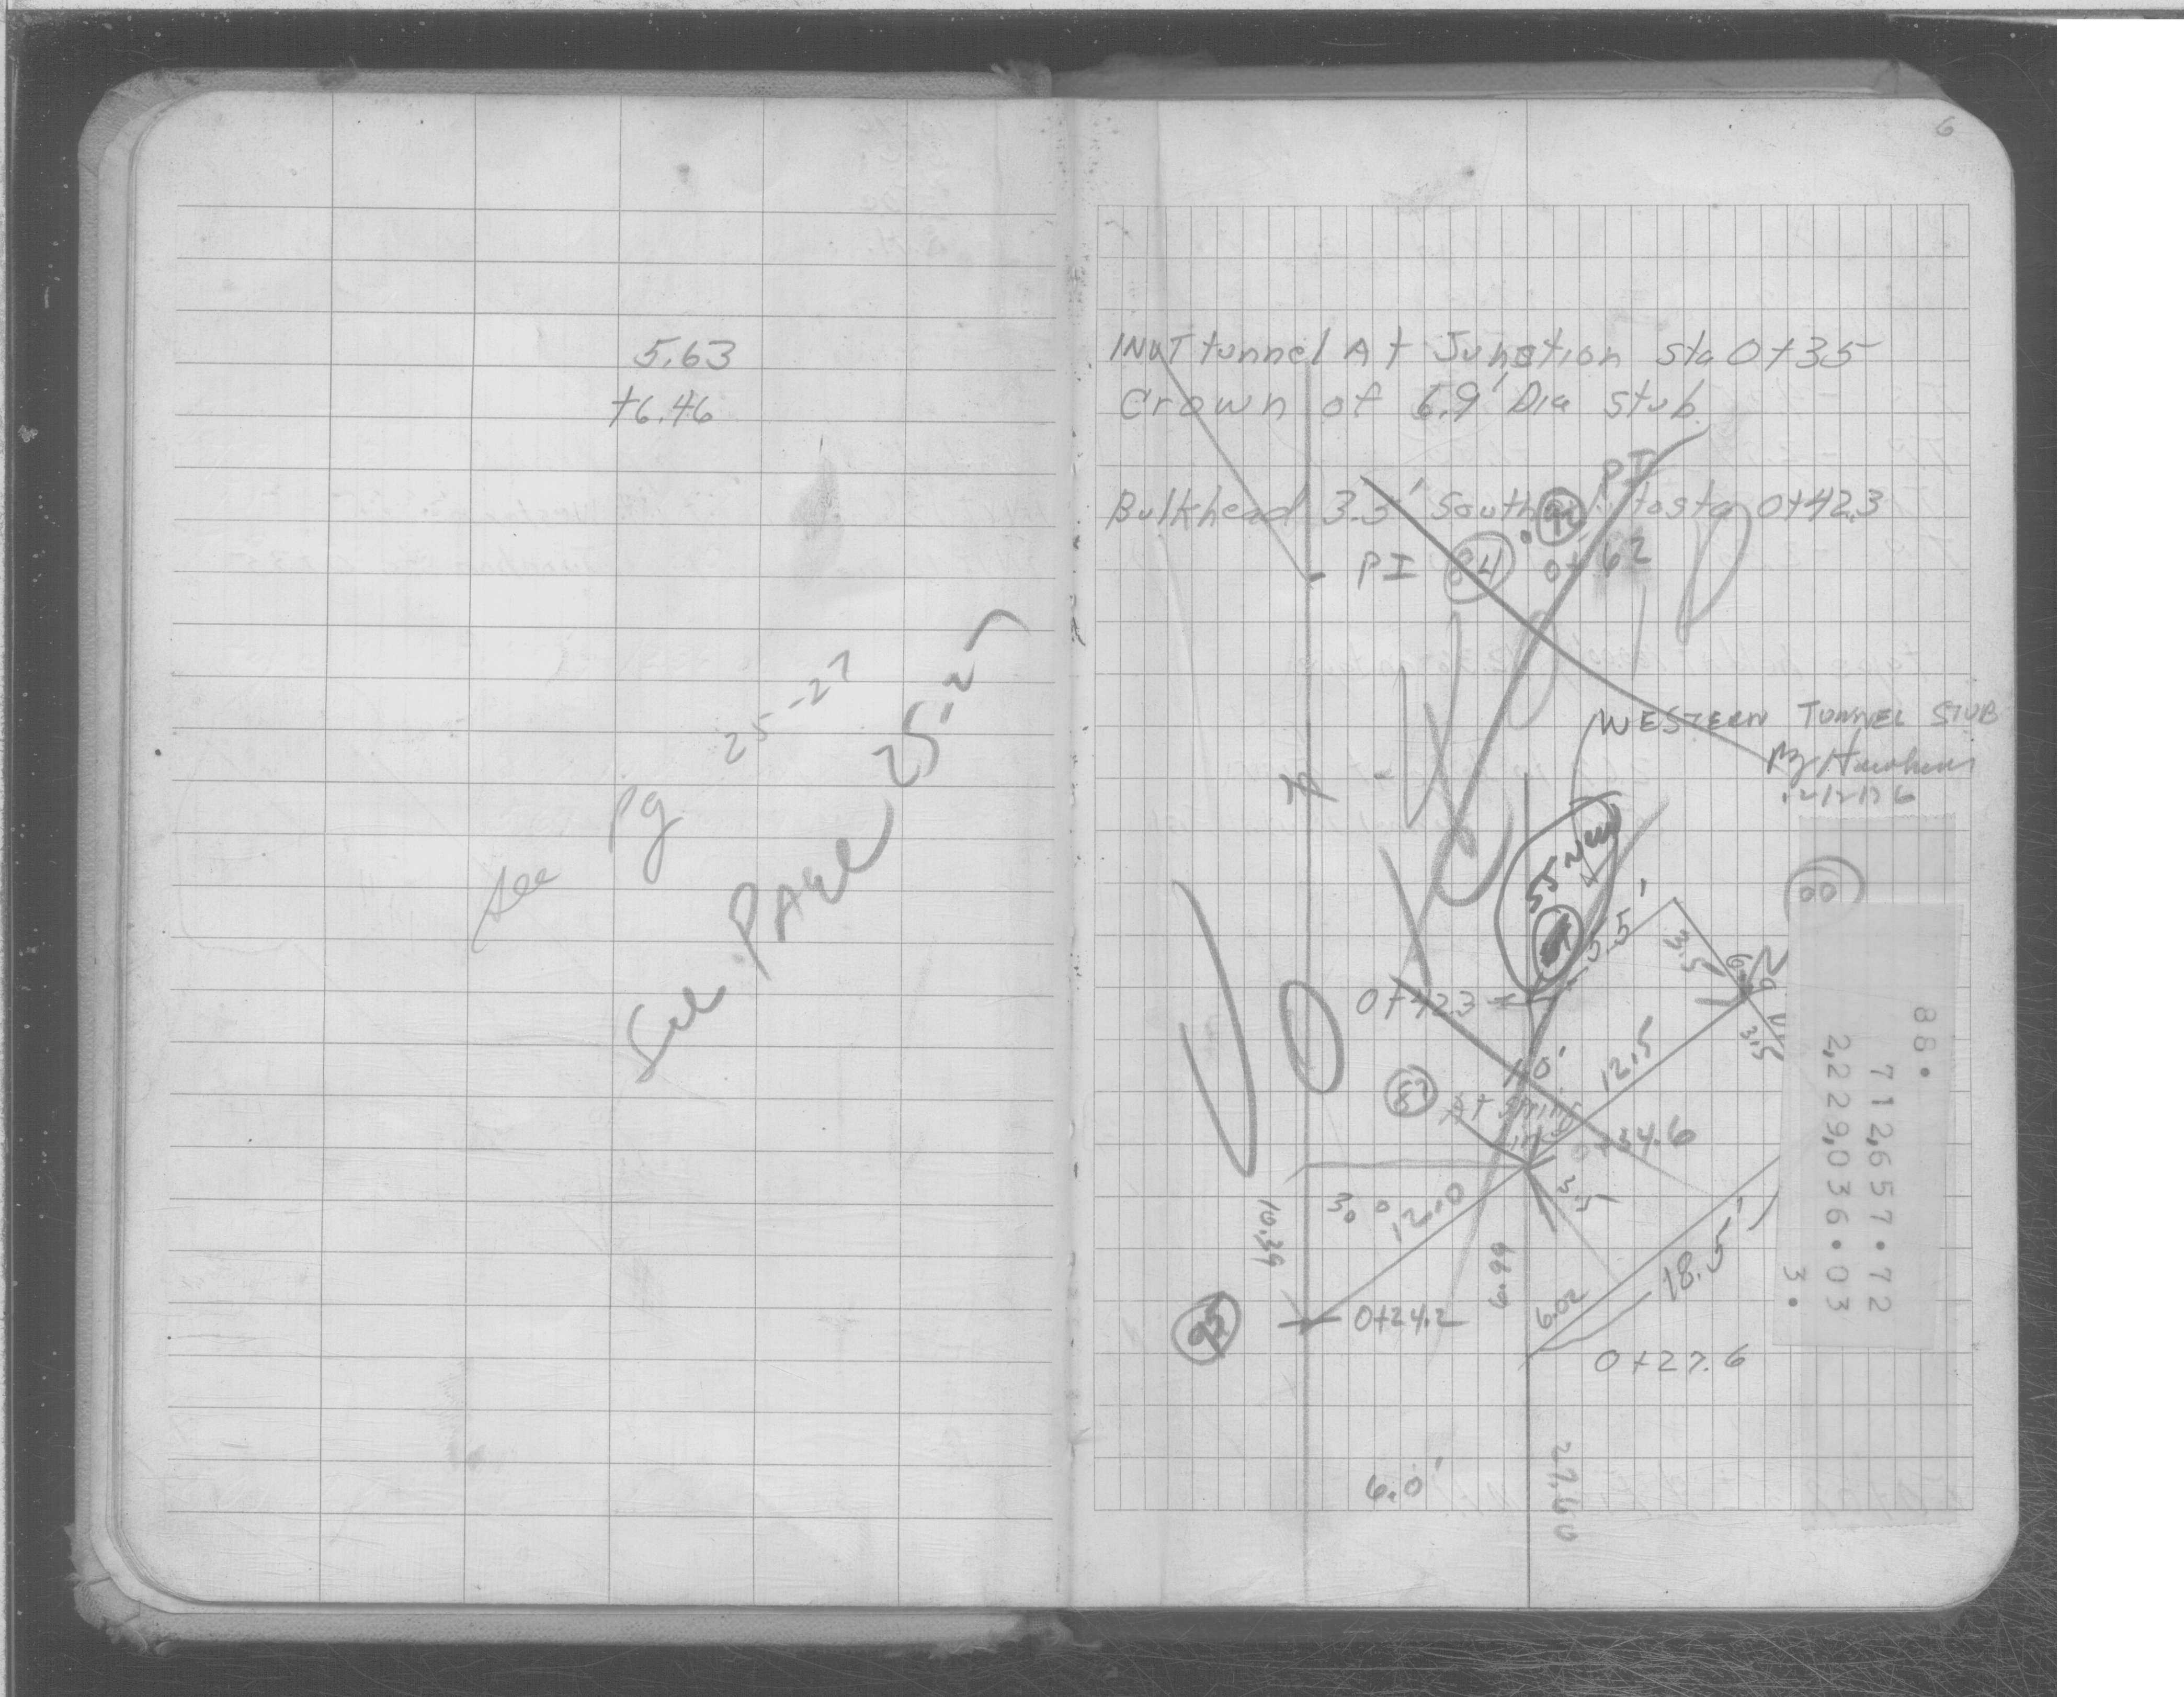 5.63
+6.46
See pg 25-27
See Page 25-27
6
INVT tunnel At Junction sta 0+35
Crown of 6.9' Dia stub
PI
Bulkhead 3.3' South to sta 0+42.3
PI 84 0+62
VOID
WESTERN TUNNEL STUB
5.5'
3.5'
0+42.3
12.5
3.5
1.0'
At Spring Line
0+34.6
3.5
30° 12.0
10.39
6.99
6.02
18.5'
95
0+24.2
0+27.6
6.0'
27.60
88.
712,657.72
2,229,036.03
3.